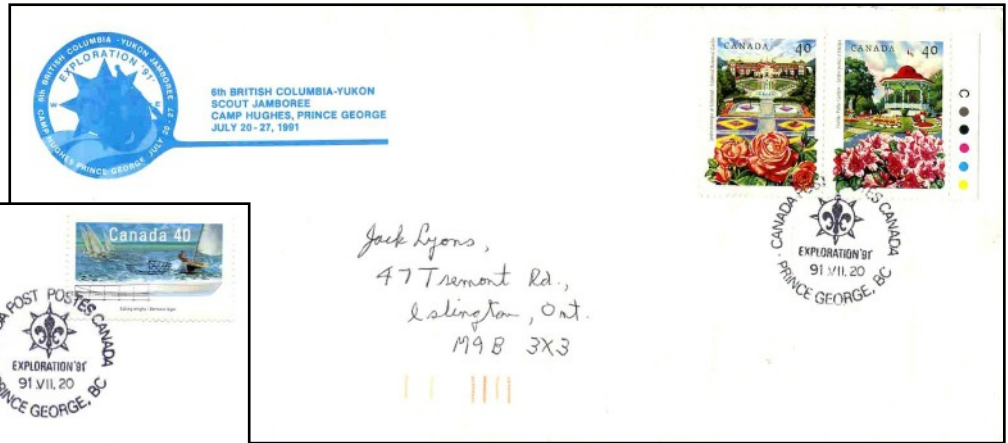 6th BRITISH COLUMBIA - YUKON JAMBOREE
EXPLORATION '91
W E
CAMP HUGHES PRINCE GEORGE JULY 20 - 27
6th BRITISH COLUMBIA-YUKON
SCOUT JAMBOREE
CAMP HUGHES, PRINCE GEORGE
JULY 20-27, 1991
CANADA 40
CANADA 40
C
CANADA POST POSTES CANADA
EXPLORATION'91
91 VII, 20
PRINCE GEORGE, BC
Jack Lyons,
47 Tremont Rd.,
Islington, Ont.
M9B 3X3
Canada 40
POST POSTES CANADA
EXPLORATION'91
91 VII, 20
PRINCE GEORGE, BC